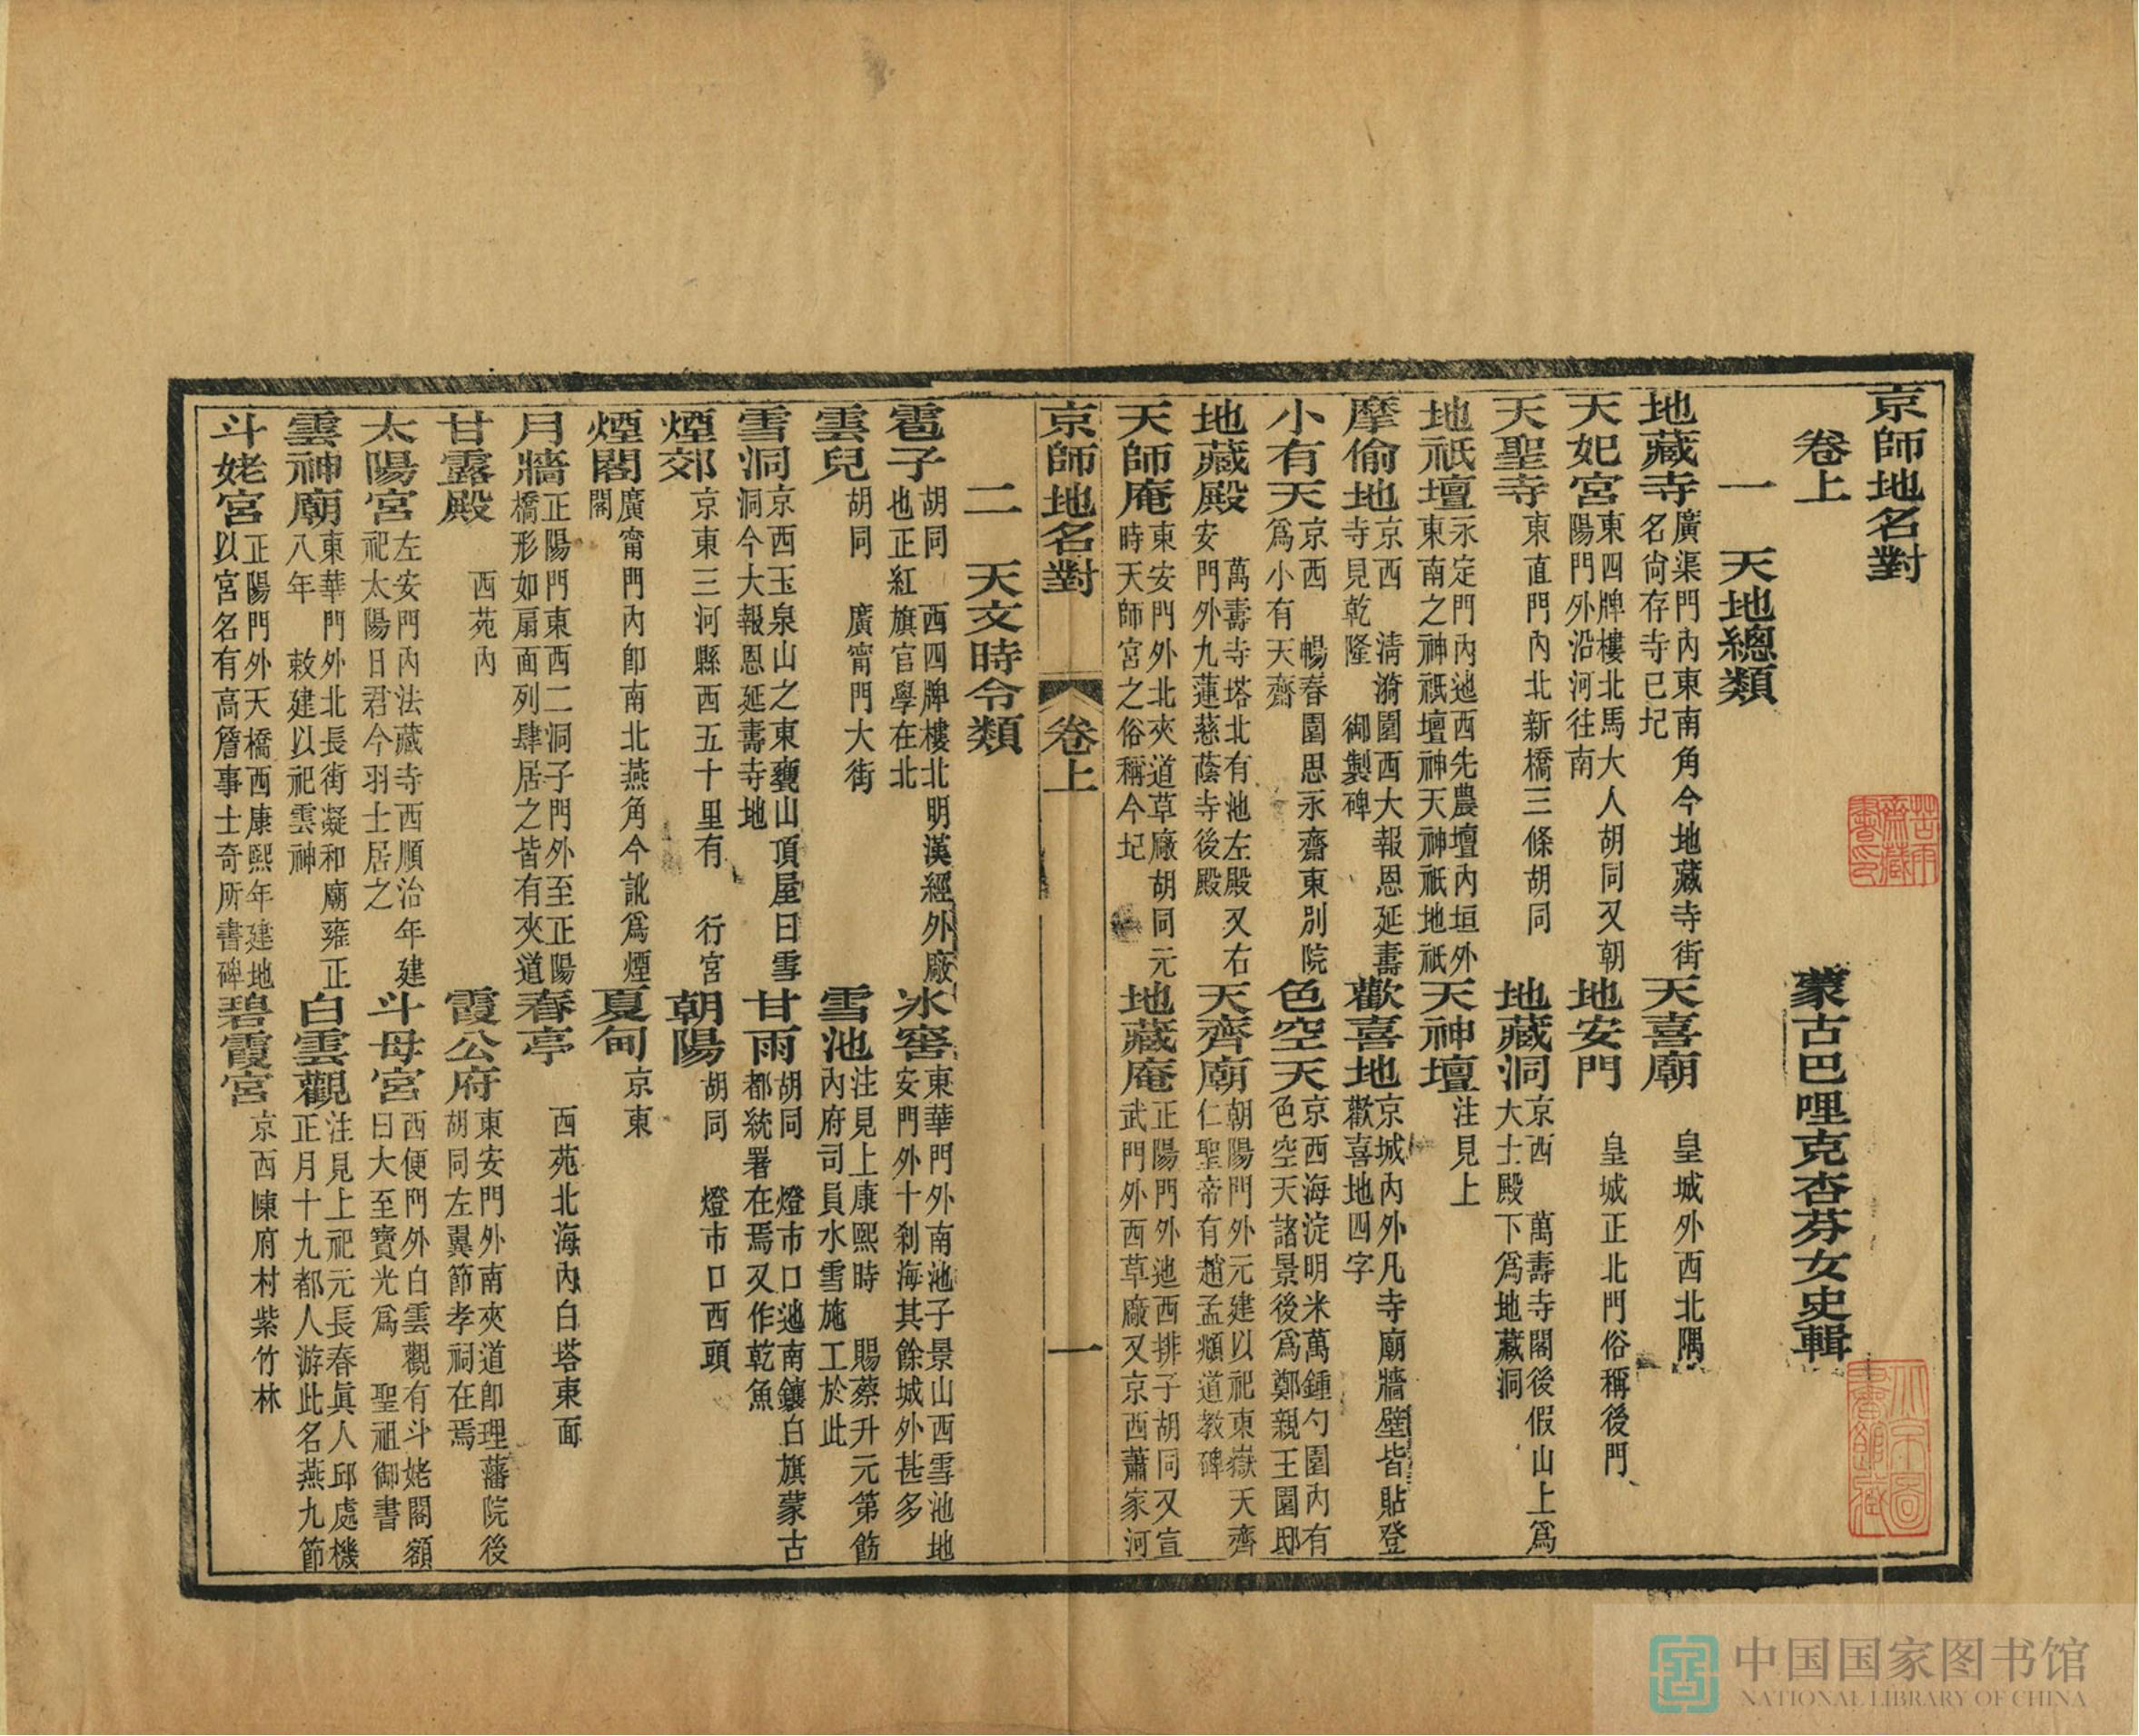 京師地名對
卷上 蒙古巴哩克杏芬女史輯
一 天地總類
地藏寺 廣渠門內東南角今地藏寺街名尙存寺已圮 天喜廟 皇城外西北隅
天妃宮 東四牌樓北馬大人胡同又朝陽門外沿河往南 地安門 皇城正北門俗稱後門
天聖寺 東直門內北新橋三條胡同 地藏洞 京西 萬壽寺閣後假山上爲大士殿下爲地藏洞
地祇壇 永定門內迤西先農壇內垣外東南之神祇壇神天神祇地祇 天神壇 注見上
摩偷地 京西 淸漪園西大報恩延壽寺見乾隆 御製碑 歡喜地 京城內外凡寺廟牆壁皆貼登歡喜地四字
小有天 京西 暢春園思永齋東別院爲小有天齋 色空天 京西海淀明米萬鍾勺園內有色空天諸景後爲鄭親王園邸
地藏殿 萬壽寺塔北有池左殿又右安門外九蓮慈蔭寺後殿 天齊廟 朝陽門外元建以祀東嶽天齊仁聖帝有趙孟頫道教碑
天師庵 東安門外北夾道草廠胡同元時天師宮之俗稱今圮 地藏庵 正陽門外迤西排子胡同又宣武門外西草廠又京西蕭家河
京師地名對 卷上 一
二 天文時令類
雹子 胡同 西四牌樓北明漢經外廠也正紅旗官學在北 冰窖 東華門外南池子景山西雪池地安門外十剎海其餘城外甚多
雲兒 胡同 廣甯門大街 雪池 注見上康熙時 賜蔡升元第飭內府司員水雪施工於此
雪洞 京西玉泉山之東甕山頂屋曰雪洞今大報恩延壽寺地 甘雨 胡同 燈市口迤南鑲白旗蒙古都統署在焉又作乾魚
煙郊 京東三河縣西五十里有 行宮 朝陽 胡同 燈市口西頭
煙閣 廣甯門內卽南北燕角今訛爲煙閣 夏甸 京東
月牆 正陽門東西二洞子門外至正陽橋形如扇面列肆居之皆有夾道 春亭 西苑北海內白塔東面
甘露殿 西苑內 霞公府 東安門外南夾道卽理藩院後胡同左翼節孝祠在焉
太陽宮 左安門內法藏寺西順治年建祀太陽日君今羽士居之 斗母宮 西便門外白雲觀有斗姥閣額曰大至寶光爲 聖祖御書
雲神廟 東華門外北長街凝和廟雍正八年 敕建以祀雲神 白雲觀 注見上祀元長春眞人邱處機正月十九都人游此名燕九節
斗姥宮 正陽門外天橋西康熙年建地以宮名有高詹事士奇所書碑 碧霞宮 京西陳府村紫竹林
苦雨齋藏書印
中国国家图书馆
NATIONAL LIBRARY OF CHINA